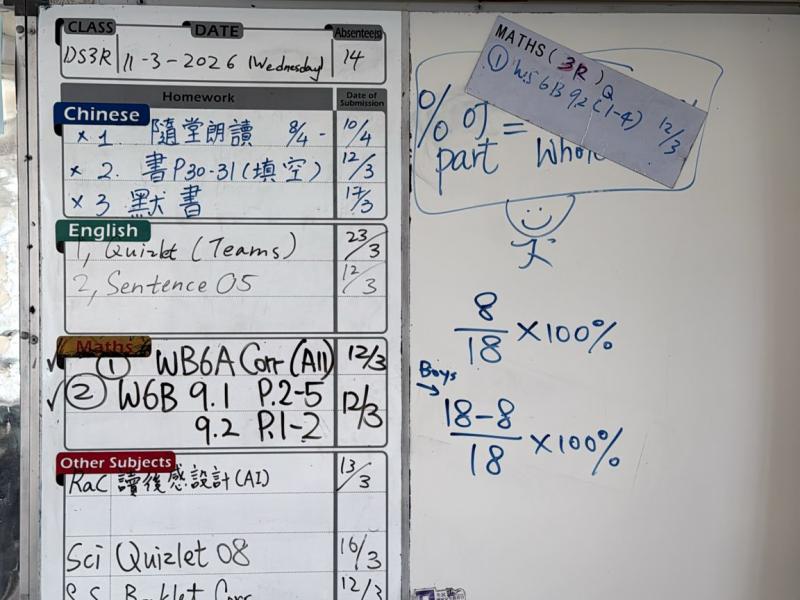 CLASS DATE Absentee(s)
DS3R 11-3-2026 (Wednesday) 14
Homework Date of Submission
Chinese
× 1. 隨堂朗讀 8/4 - 10/4
× 2. 書P30-31(填空) 12/3
× 3 默書 17/3
English
1, Quizlet (Teams) 23/3
2, Sentence 05 12/3
Maths
① WB6A Corr (All) 12/3
② W6B 9.1 P.2-5 12/3
9.2 P.1-2
Other Subjects
RaC 讀後感設計(AI) 13/3
Sci Quizlet 08 16/3
S.S. Booklet Corr 12/3
MATHS( 3R )
① WS 6B 9.2 (1-4) 12/3
% of = 
part Whole
8/18 ×100%
Boys
18-8/18 ×100%